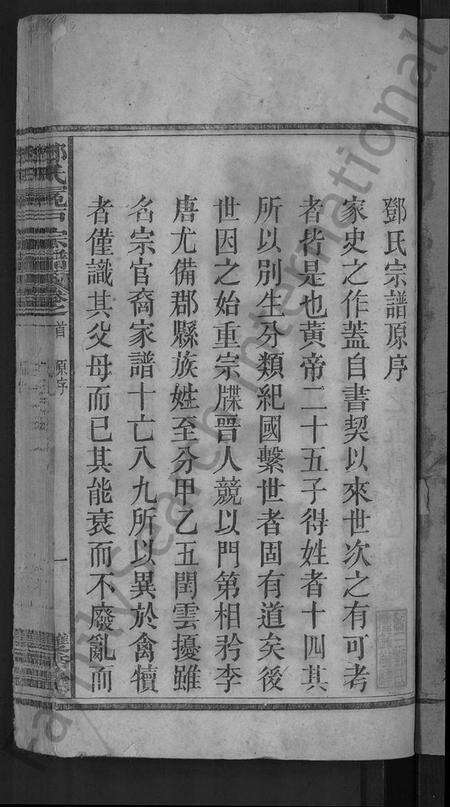 鄧氏宗譜原序
家史之作蓋自書契以來世次之有可考
者皆是也黃帝二十五子得姓者十四其
所以別生分類紀國繫世者固有道矣後
世因之始重宗牒晉人競以門第相矜李
唐尤備郡縣族姓至分甲乙五閏雲擾雖
名宗官裔家譜十亡八九所以異於禽犢
者僅識其父母而已其能衰而不廢亂而
宗譜 卷之首 原序 一